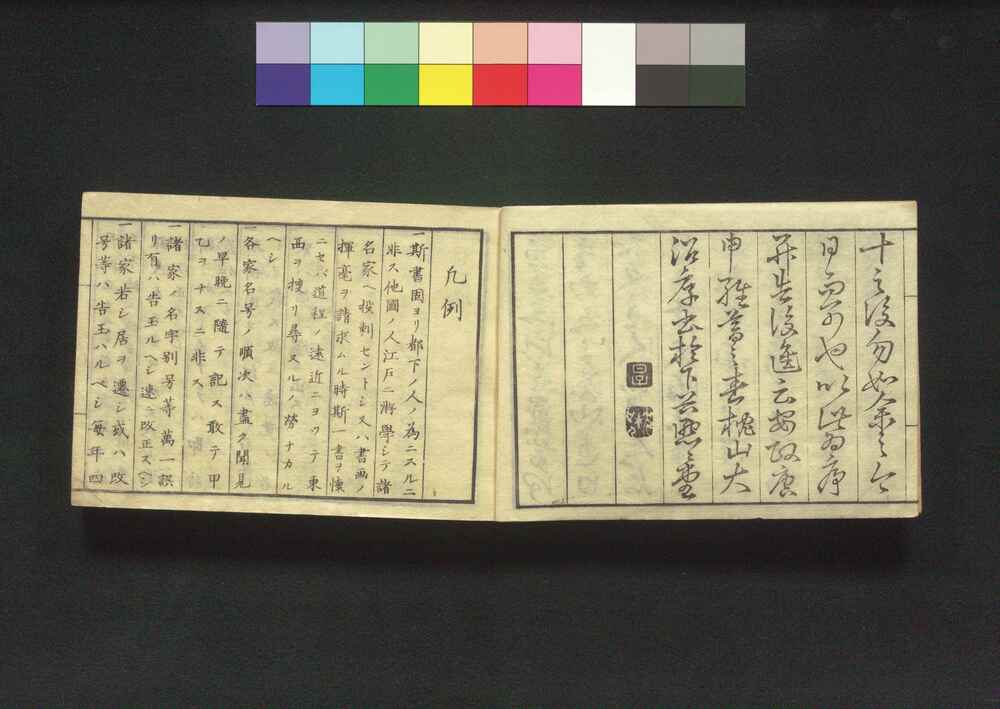 十之後勿如余之今
日而可也以此為序
并告後進云安政庚
申維暮之春槐山大
沼厚書於下谷
凡例
一斯書固ヨリ都下ノ人ノ為ニスルニ
非ス他國ノ人江戸ニ游學シテ諸
名家ヘ投刺セントシ又ハ書画ノ
揮毫ヲ請求ムル時斯一書ヲ懐
ニセバ道程ノ遠近ニヨツテ東
西ヲ捜リ尋ヌルノ勞ナカル
ヘシ
一各家名号ノ順次ハ盡ク聞見
ノ早晩ニ隨テ記ス敢テ甲
乙ヲナスニ非ス
一諸家ノ名字別号等萬一誤
リ有ハ告玉ルヘシ速ニ改正スヘシ
一諸家若シ居ヲ遷シ或ハ改
号等ハ告玉ハルベシ毎年四